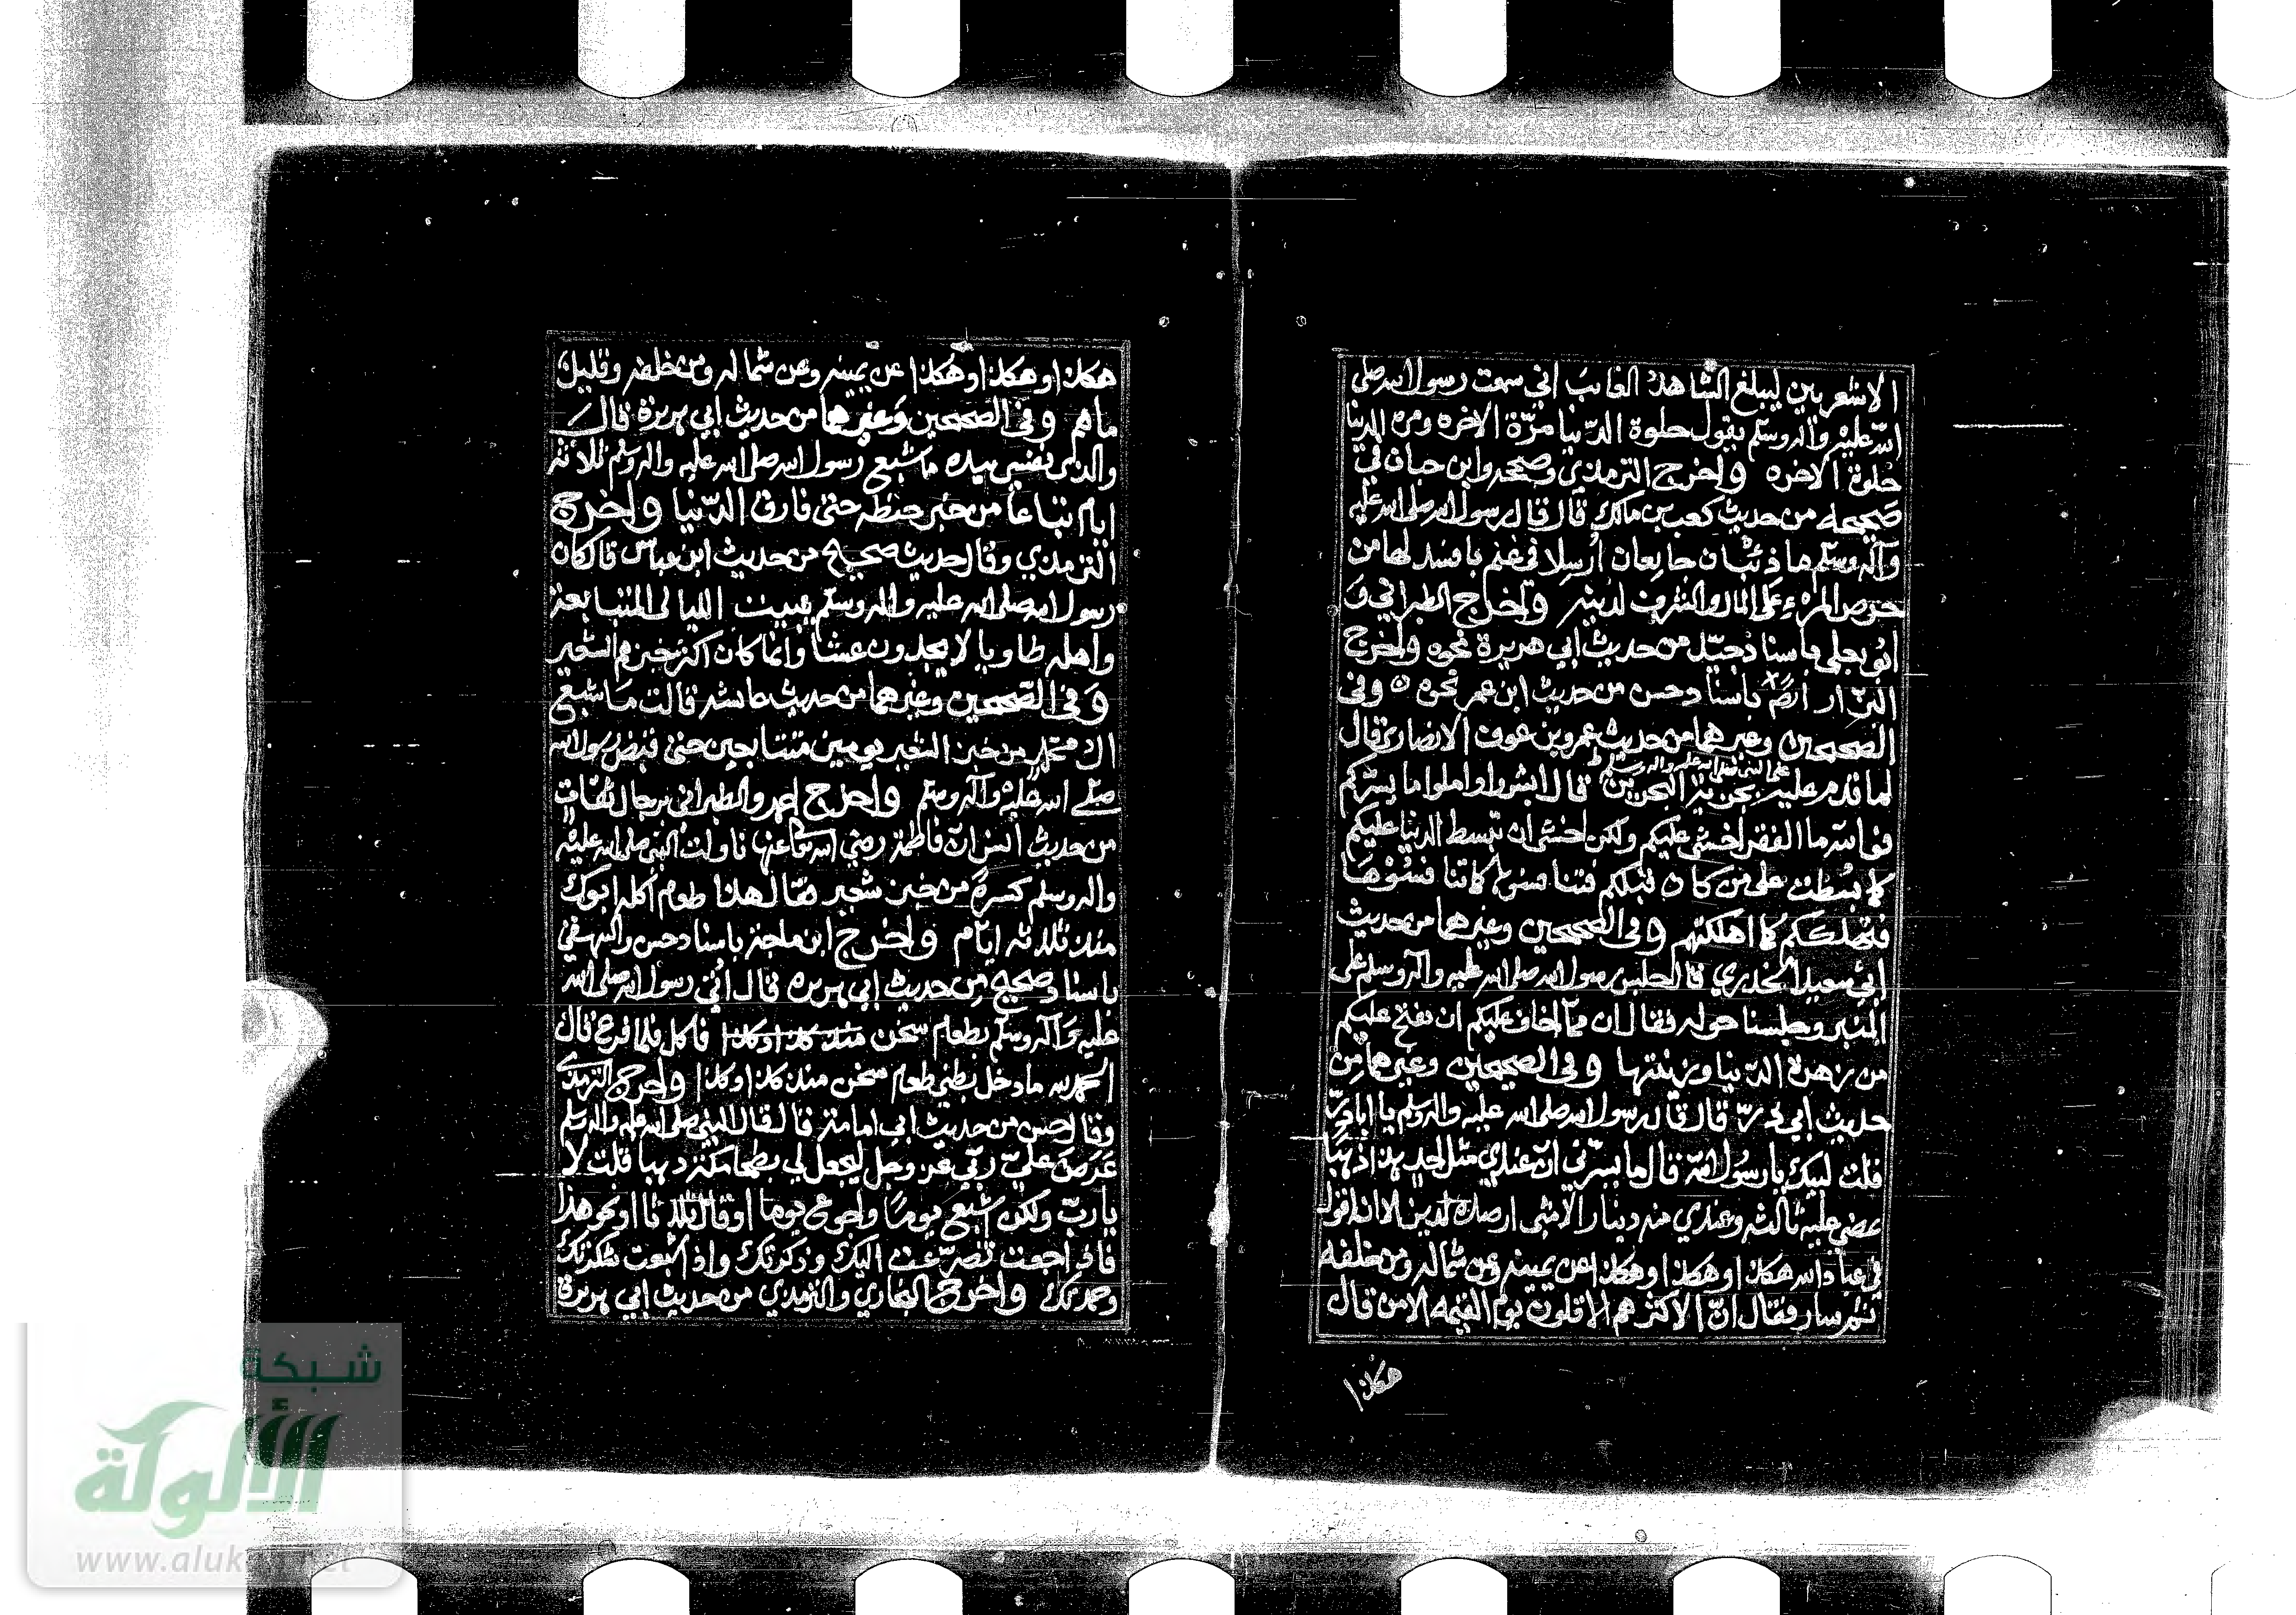 الاشعريين ليبلغ الشاهد الغائب اني سمعت رسول الله صلى
الله عليه واله وسلم يقول حلوة الدنيا مرّة الاخره ومره الدنيا
حلوة الاخره واخرج الترمذي وصححه وابن حبان في
صحيحه من حديث كعب بن مالك قال قال رسول الله صلى الله عليه
وآله وسلم ما ذئبان جايعان أرسلا في غنم بافسد لها من
حرص المرء على المال والشرف لدينه واخرج الطبراني و
ابو يعلى باسناد جيّد من حديث ابي هريرة نحوه واخرج
البزار ايضا باسناد حسن من حديث ابن عمر نحوه وفي
الصحيحين وغيرهما من حديث عمرو بن عوف الانصاري قال
على النبي صلى الله عليه واله وسلم
لما قدم عليه بجزية البحرين قال ابشروا واملوا ما يسرّكم
فوالله ما الفقر اخشى عليكم ولكن اخشى ان تبسط الدنيا عليكم
كما بسطت على من كان قبلكم فتنافسوها كما تنافسوها
فتهلككم كما اهلكتهم وفي الصحيحين وغيرهما من حديث
ابي سعيد الخدري قال جلس رسول الله صلى الله عليه وآله وسلم على
المنبر وجلسنا حوله فقال ان مما اخاف عليكم ان يفتح عليكم
من زهرة الدنيا وزينتها وفي الصحيحين وغيرهما من
حديث ابي ذرّ قال قال رسول الله صلى الله عليه واله وسلم يا اباذرّ
قلت لبيك يا رسول الله قال ما يسرّني انّ عندي مثل احد هذا ذهبًا
تمضي عليه ثالثه وعندي منه دينار الا شي ارصده لدين الا ان اقول
في عباد الله هكذا وهكذا وهكذا عن يمينه وعن شماله ومن خلفه
ثم سار فقال انّ الاكثر هم الاقلون يوم القيمه الا من قال
هكذا
هكذا وهكذا وهكذا عن يمينه وعن شماله ومن خلفه وقليل
ما هم وفي الصحيحين وغيرهما من حديث ابي هريرة قال
والذي نفسي بيده ما شبع رسول الله صلى الله عليه واله وسلم ثلاثة
ايام تباعا من خبز حنطه حتى فارق الدّنيا واخرج
الترمذي وقال حديث صحيح من حديث ابن عباس قال كان
رسول الله صلى الله عليه واله وسلم يبيت الليالي المتتابعة
واهله طاويا لا يجدون عشا وانما كان اكثر خبزهم الشعير
وفي الصّحيحين وغيرهما من حديث عائشه قالت ما شبع
ال محمد من خبز الشعير يومين متتابعين حتى قبض رسول الله
صلى الله عليه وآله وسلم واخرج احمد والطبراني برجال ثقات
من حديث انس انّ فاطمة رضي الله تعالى عنها ناولت النبي صلى الله عليه
واله وسلم كسرة من خبز شعير فقال هذا طعام اكله ابوك
منذ ثلاثه ايّام واخرج ابن ماجة باسناد حسن والبيهقي
باسناد صحيح من حديث ابي هريره قال اُتي رسول الله صلى الله
عليه وآله وسلم بطعام سخن منذ كذا وكذا فاكل فلما فرغ قال
الحمد لله ما دخل بطني طعام سخن منذ كذا وكذا واخرج الترمذي
وقال حسن من حديث ابي امامة قال قال النبي صلى الله عليه واله وسلم
عَرَضَ عليّ ربّي عز وجل ليجعل لي بطحا مكة ذهبا قلت لا
يا ربّ ولكن اشبع يومًا واجوع يوما او قال ثلاثا او نحو هذا
فاذا جعت تضرّعت اليك وذكرتك واذا شبعت شكرتك
وحمدتك واخرج البخاري والترمذي من حديث ابي هريرة
شبكة
الألوكة
www.aluk